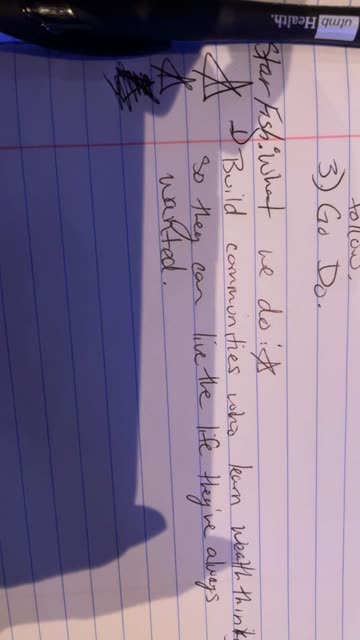 utmb Health.
follow.
3) Go Do.
Star Fish: What we do:
1) Build communities who learn wealth think
so they can live the life they've always
wanted.